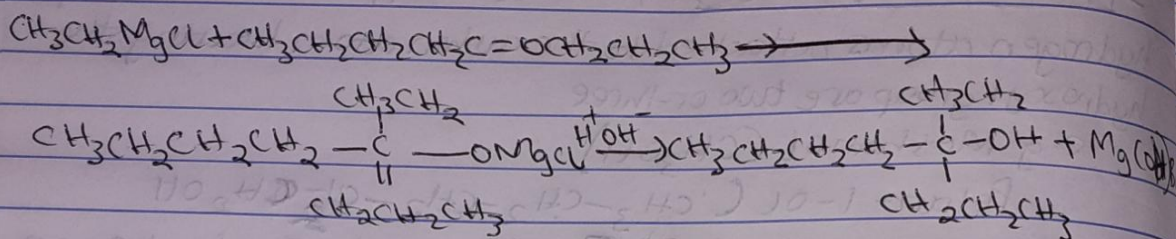 CH3CH2MgCl + CH3CH2CH2CH2C=OCH2CH2CH3 →
CH3CH2 CH3CH2
CH3CH2CH2CH2 - C - OMgCl H+OH- → CH3CH2CH2CH2 - C - OH +
CH2CH2CH3 CH2CH2CH3